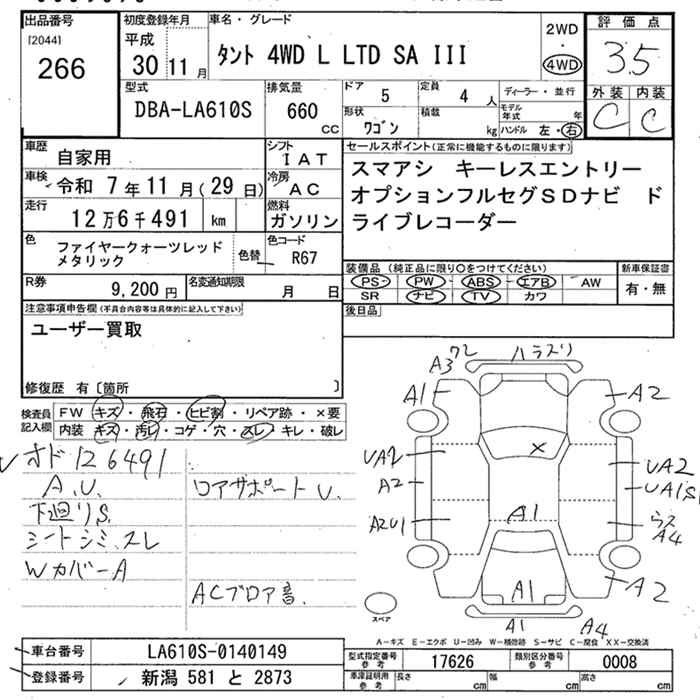 出品番号
[2044]
266
初度登録年月
平成
30 11 月
車名・グレード
タント 4WD L LTD SA III
2WD
・
4WD
評価点
3.5
外装 内装
C C
型式
DBA-LA610S
排気量
660
CC
ドア
5
定員
4 人
形状
ワゴン
積載
kg
ディーラー・並行
モデル年式
年
ハンドル 左・右
車歴
自家用
シフト
IAT
車検
令和 7年11月(29日)
冷房
AC
走行
12万6千491 km
燃料
ガソリン
色
ファイヤークォーツレッド
メタリック
色替
色コード
R67
R券
9,200円
名変通知期限
月 日
セールスポイント(正常に機能するものに限ります)
スマアシ キーレスエントリー
オプションフルセグSDナビ ド
ライブレコーダー
装備品(純正品に限り○をつけてください)
新車保証書
PS PW ABS エアB AW
SR ナビ TV カワ
有・無
後日品
注意事項申告欄(不具合内容等は具体的に記入して下さい)
ユーザー買取
修復歴 有〔箇所 〕
検査員
記入欄
FW キズ・飛石・ヒビ割・リペア跡・×要
内装 キズ・汚レ・コゲ・穴・スレ・キレ・破レ
オド126491
A.U.
下廻りS.
シートシミ、スレ
WカバーA
ロアサポートU.
ACブロア音.
A3 ワレ
ハラスリ
A1
A2
×
UA2
A2
A2U1
UA2
UA1S1
ウス
A4
A1
A1
A2
A1
A4
スペア
A-キズ E-エクボ U-凹み W-補修跡 S-サビ C-腐食 XX-交換済
車台番号
LA610S-0140149
登録番号
新潟 581 と 2873
型式指定番号
参考
17626
類別区分番号
参考
0008
車庫証明用
参考
長さ
cm
幅
cm
高さ
cm